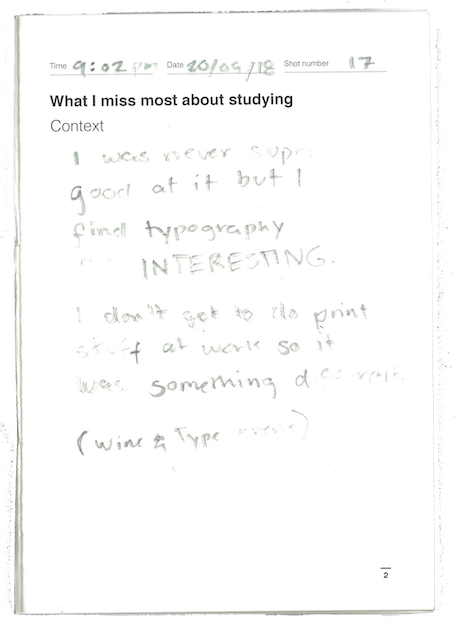 Time 9:02 pm Date 20/09/18 Shot number 17
What I miss most about studying
Context
I was never
good at it but I
find typography
INTERESTING.
I don't get to do print
stuff at work so it
was something different.
(Wine & Type
2